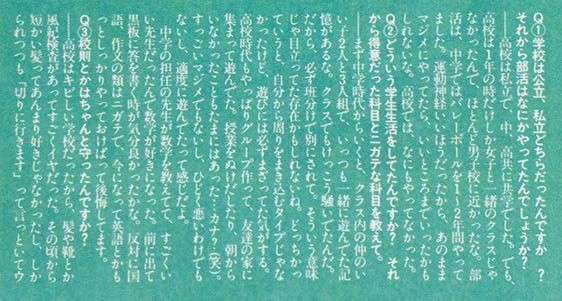 Q①学校は公立、私立どちらだったんですか？
それから部活はなにかやってたんでしょうか？
――高校は私立で、中、高共に共学でした。でも、
高校は1年の時だけしか女子と一緒のクラスじゃ
なかったんで、ほとんど男子校に近かったな。部
活は、中学ではバレーボールを1〜2年間やって
ました。運動神経いいほうだったから、あのまま
マジメにやってたら、いいところまでいったんかも
しれないな。高校では、なにもやってなかった。
Q②どういう学生生活をしてたんですか？ それ
から得意だった科目とニガテな科目を教えて。
――まず中学時代からいくと、クラス内の仲のい
い子2人と3人組で、いっつも一緒に遊んでた記
憶があるな。クラスでもけっこう騒いでたんだ。
だから、必ず班分けで別にされて、そういう意味
じゃ目立ってた存在かもしれないね。どっちかっ
ていうと、自分から周りをまき込むタイプじゃな
かったけど、遊びには必ずまざってた気がする。
高校時代もやっぱりグループ作って、友達の家に
集まって遊んでた。授業をぬけだしたり、朝から
いなかったこともたまにはあった…カナ？(笑)。
すっごいマジメでもなし、ひどく悪いわけでも
ないし、適度に遊んでたって感じだよ。
　中学の担任の先生が数学を教えてて、すごくい
い先生だったんで数学が好きになった。前に出て
黒板に答えを書く時が気分良かったかな。反対に国
語、作文の類はニガテで、今になって英語とかも
っとしっかりやっておけばって後悔してます。
Q③校則とかはちゃんと守ったんですか？
――高校はキビシイ学校だったから、髪や靴とか
風紀検査があってすごくイヤだった。その頃から
短かい髪ってあんまり好きじゃなかったし、しか
られつつも「切りに行きます」って言っといてウ